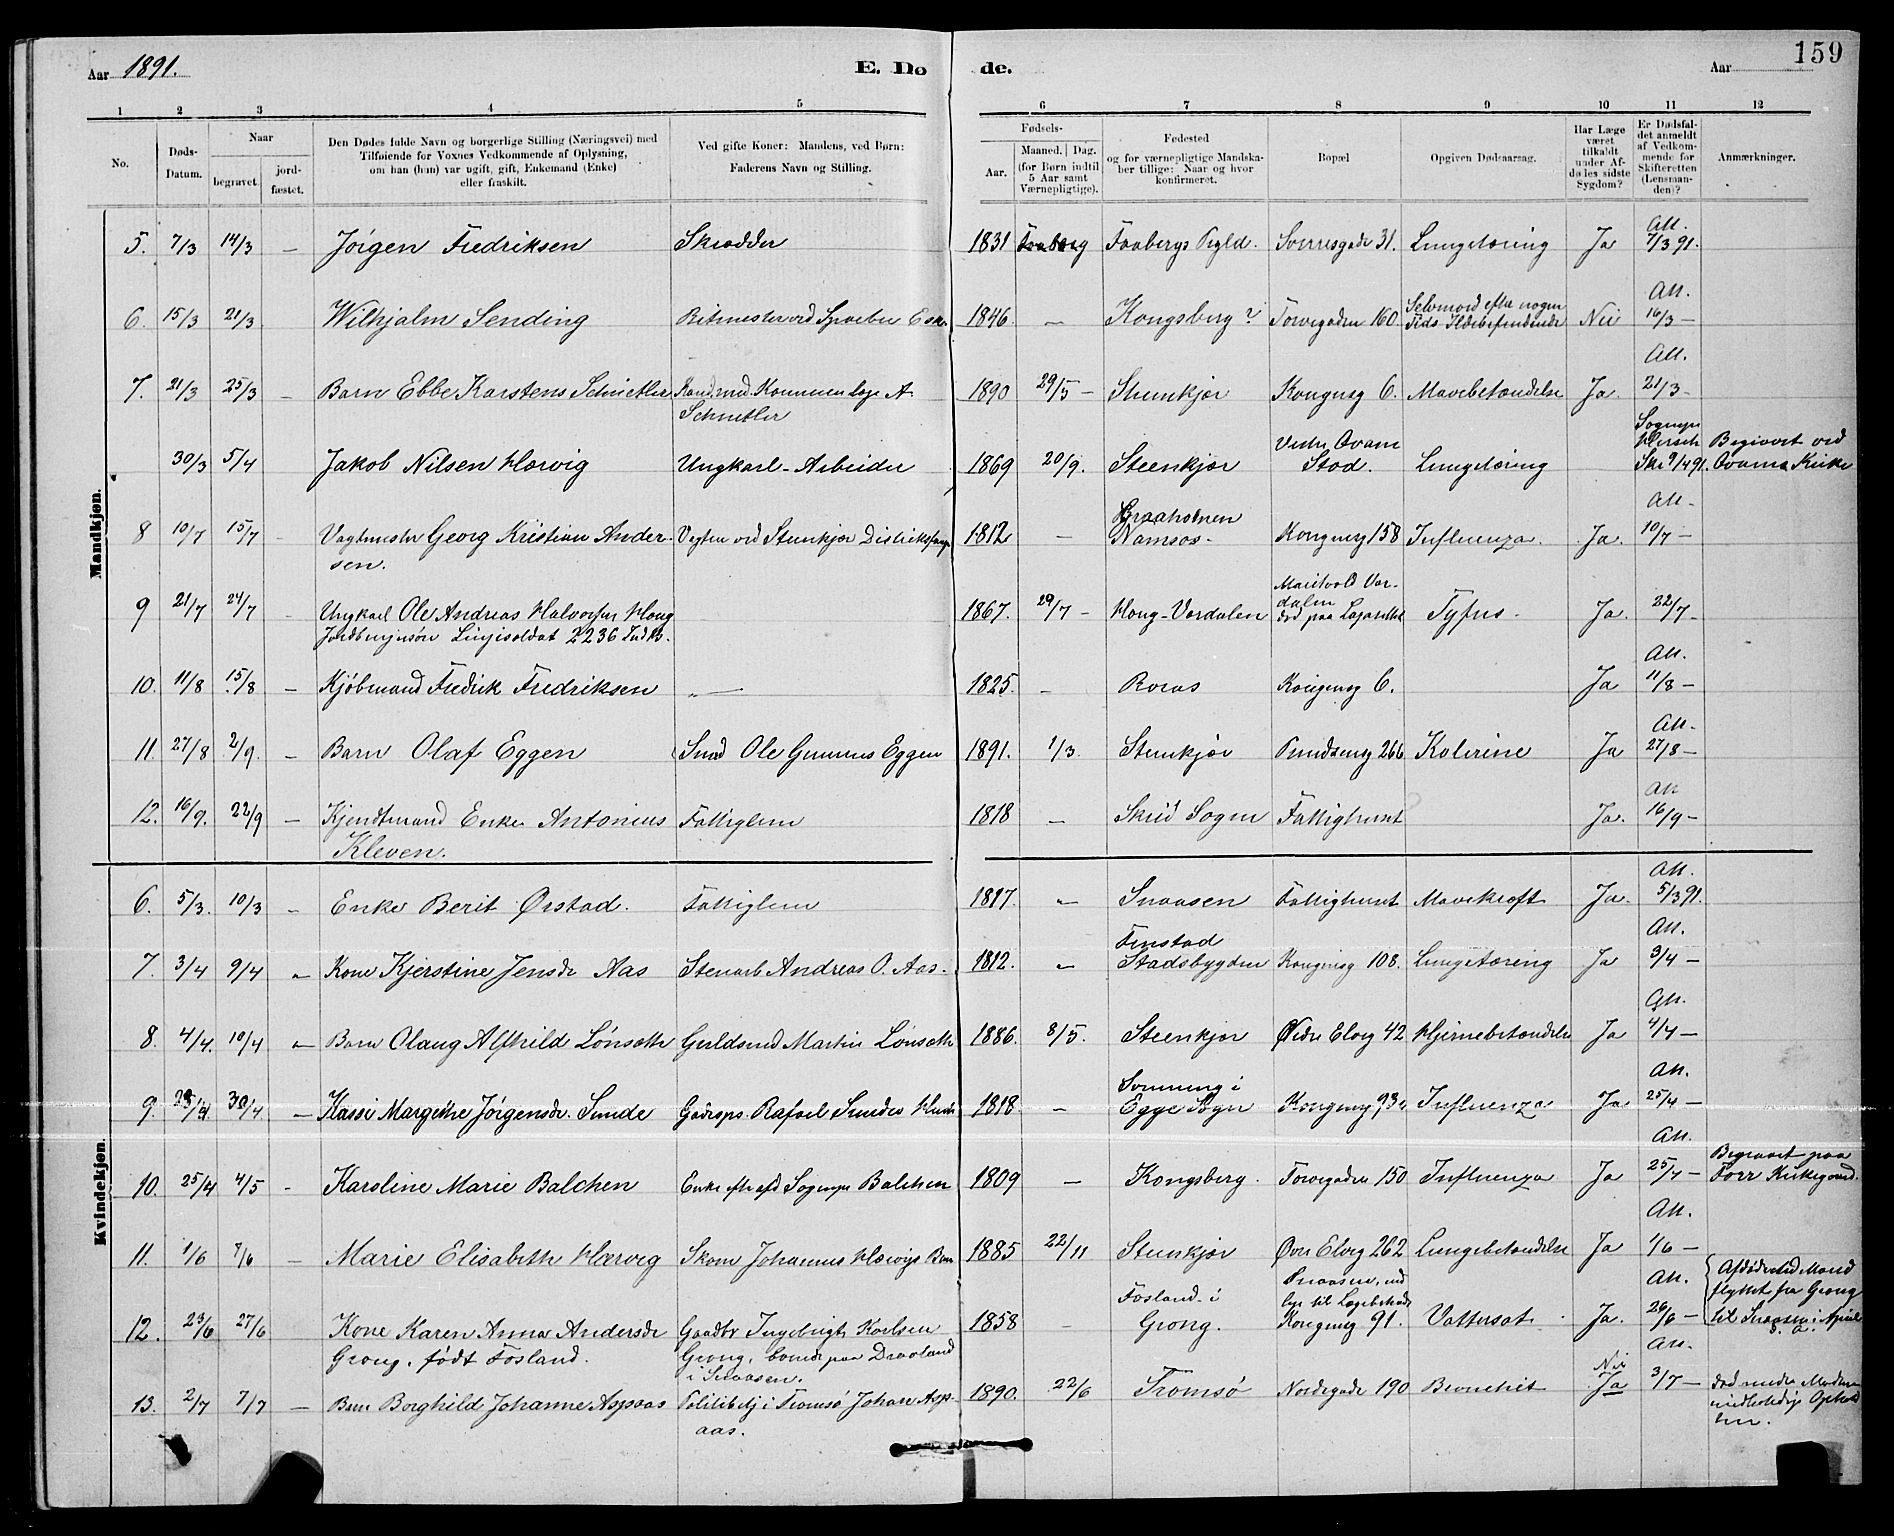 159
Aar 1891.
E. Dø de.
Aar
1 2 3 4 5 6 7 8 9 10 11 12
No.
Døds-Datum.
Naar
begravet.
jordfæstet.
Den Dødes fulde Navn og borgerlige Stilling (Næringsvei) med
Tilføiende for Voxnes Vedkommende af Oplysning,
om han (hun) var ugift, gift, Enkemand (Enke)
eller fraskilt.
Ved gifte Koner: Mandens, ved Børn:
Faderens Navn og Stilling.
Fødsels-
Aar.
Maaned. Dag.
(for Børn indtil
5 Aar samt
Værnepligtige).
Fødested
og for værnepligtige Mandska-
ber tillige: Naar og hvor
konfirmeret.
Bopæl
Opgiven Dødsaarsag.
Har Læge
været
tilkaldt
under Af-
dødes sidste
Sygdom?
Er Dødsfal-
det anmeldt
af Vedkom-
mende for
Skifteretten
(Lensman-
den)?
Anmærkninger.
Mandkjøn.
5. 7/3 14/3 – Jørgen Fredriksen Skrædder 1831 Faaberg Faabergs Pgld. Sverresgade 31. Lungetæring Ja Att. 7/3 91.
6. 15/3 21/3 Wilhjalm Sending Ritmester ved 1846 – Kongsberg? Torvegaden 160 Selvmord efter nogen Tids Ildebefindende Nei Att. 16/3 –
7. 21/3 25/3 – Barn Ebbe Karstens Schnitler Kand. med. A. Schnitler 1890 29/5 – Stenkjær Kongensg 6. Mavebetændelse Ja. Att. 21/3 –
30/3 5/4 Jakob Nilsen Hærvig Ungkarl - Arbeider 1869 20/9. Steenkjær Vestre Qvam Stod. Lungetæring Sognepr Skr 9/4 91. Begravet ved Qvams Kirke
8 10/7 15/7 – Vagtmester Georg Kristian Andersen. Vagten ved Stenkjær Distriktsfængs 1812 – Namsos – Kongensg 158 Influenza. Ja. Att. 10/7 –
9 21/7 24/7 – Ungkarl Ole Andreas Halvorsen Haug
Jordbrugersøn Linjesoldat 2236 1867. 29/7 – Haug - Værdalen Maritvold Værdalen død paa Lazarethet Tyfus – Ja. 22/7 –
10. 11/8 15/8 – Kjøbmand Fredrik Fredriksen „ — 1825. – Roraas Kongensg 6. Ja Att. 11/8 –
11. 27/8 2/9. – Barn Olaf Eggen Smed Ole Gunnerus Eggen 1891. 1/3. Stenkjær 266 Kolerine Ja Att. 27/8 –
12. 16/9. 22/9 – Kjendtmand Enkem Antonius Kleven. Fattiglem 1818 – Skeid Sogn Fattighuset Ja. Att 16/9 –
Kvindekjøn.
6. 5/3. 10/3 – Enke Berit Ørstad. Fattiglem 1817. „ Snaasen Fattighuset Mavekræft Ja. Att. 5/3 91.
7. 3/4 9/4 „ Kone Kjerstine Jensdr Aas Stenarb Andreas O. Aas. 1812. „ Finstad Stadsbygden Kongensg 108. Lungetæring Ja Att. 3/4 –
8. 4/4. 10/4 „ Barn Olaug Alfhild Lønseth Guldsmed Martin Lønseth 1886. 8/5. Steenkjær Øvre Elveg 42 Hjernebetændelse Ja Att. 4/4 –
9 30/4 – Kassi Margithe Jørgensdr. Sunde Rafael Sundes Hustr 1818 – Egge Sogn Kongensg 93 Influenza Ja Att. 25/4 –
10. 25/4 4/5 – Karoline Marie Balchen Enke efter afd Sognepr Balchen 1809 – Kongsberg. Torvegaden 150 Influenza Ja Att. 25/4 – Begravet paa Før Kirkegaard.
11. 1/6 7/6 – Marie Elisabeth Hærvig Skom Johannes Hærvigs Barn 1885 22/11 Stenkjær Øvre Elveg 262 Lungebetændelse Ja Att. 1/6 –
12. 23/6 27/6 Kone Karen Anna Andersdr Grong, født Fosland. Gaardbr Ingebrigt Karlsen Grong, boende paa i Snaasen. 1858 – Fosland i Grong. Snaasen, Kongensg 91. Vattersot Ja. Att. 26/6 – Afdøde med Mand flyttet fra Grong til Snaasen i April d. A.
13. 2/7 7/7 – Barn Borghild Johanne Aspaas Politibetj i Tromsø Johan Aspaas. 1890. 22/6 Tromsø Nordregade 190 Bronchit Nei Ja Att. 3/7 – død under Moderens midlertidige Ophold her.